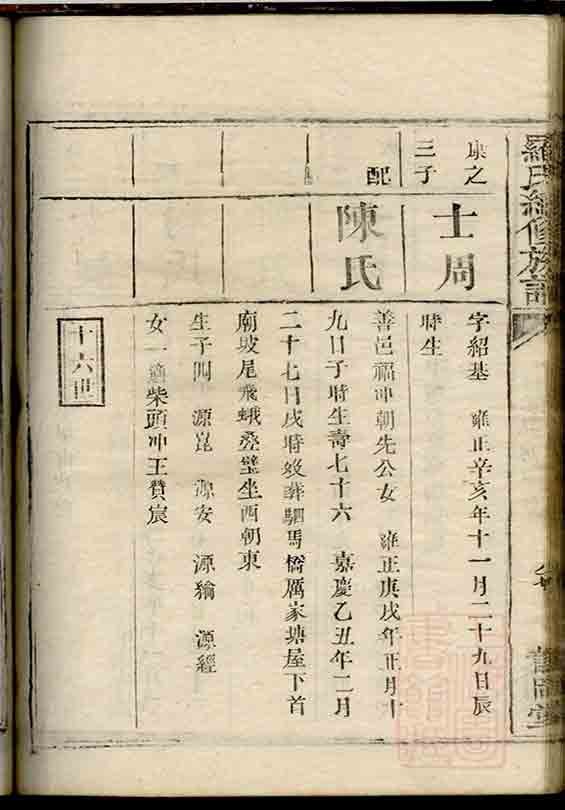 羅氏續修族譜
康之
三子
士周
字紹基　雍正辛亥年十一月二十九日辰
時生
配
陳氏
善邑福冲朝先公女　雍正庚戌年正月十
九日子時生壽七十六　嘉慶乙丑年二月
二十七日戌時歿葬駟馬橋厲家塘屋下首
廟坡尾飛蛾壁坐酉朝東
生子四　源崑　源安　源綸　源經
女一適柴頭冲王贊宸
十六世
堂